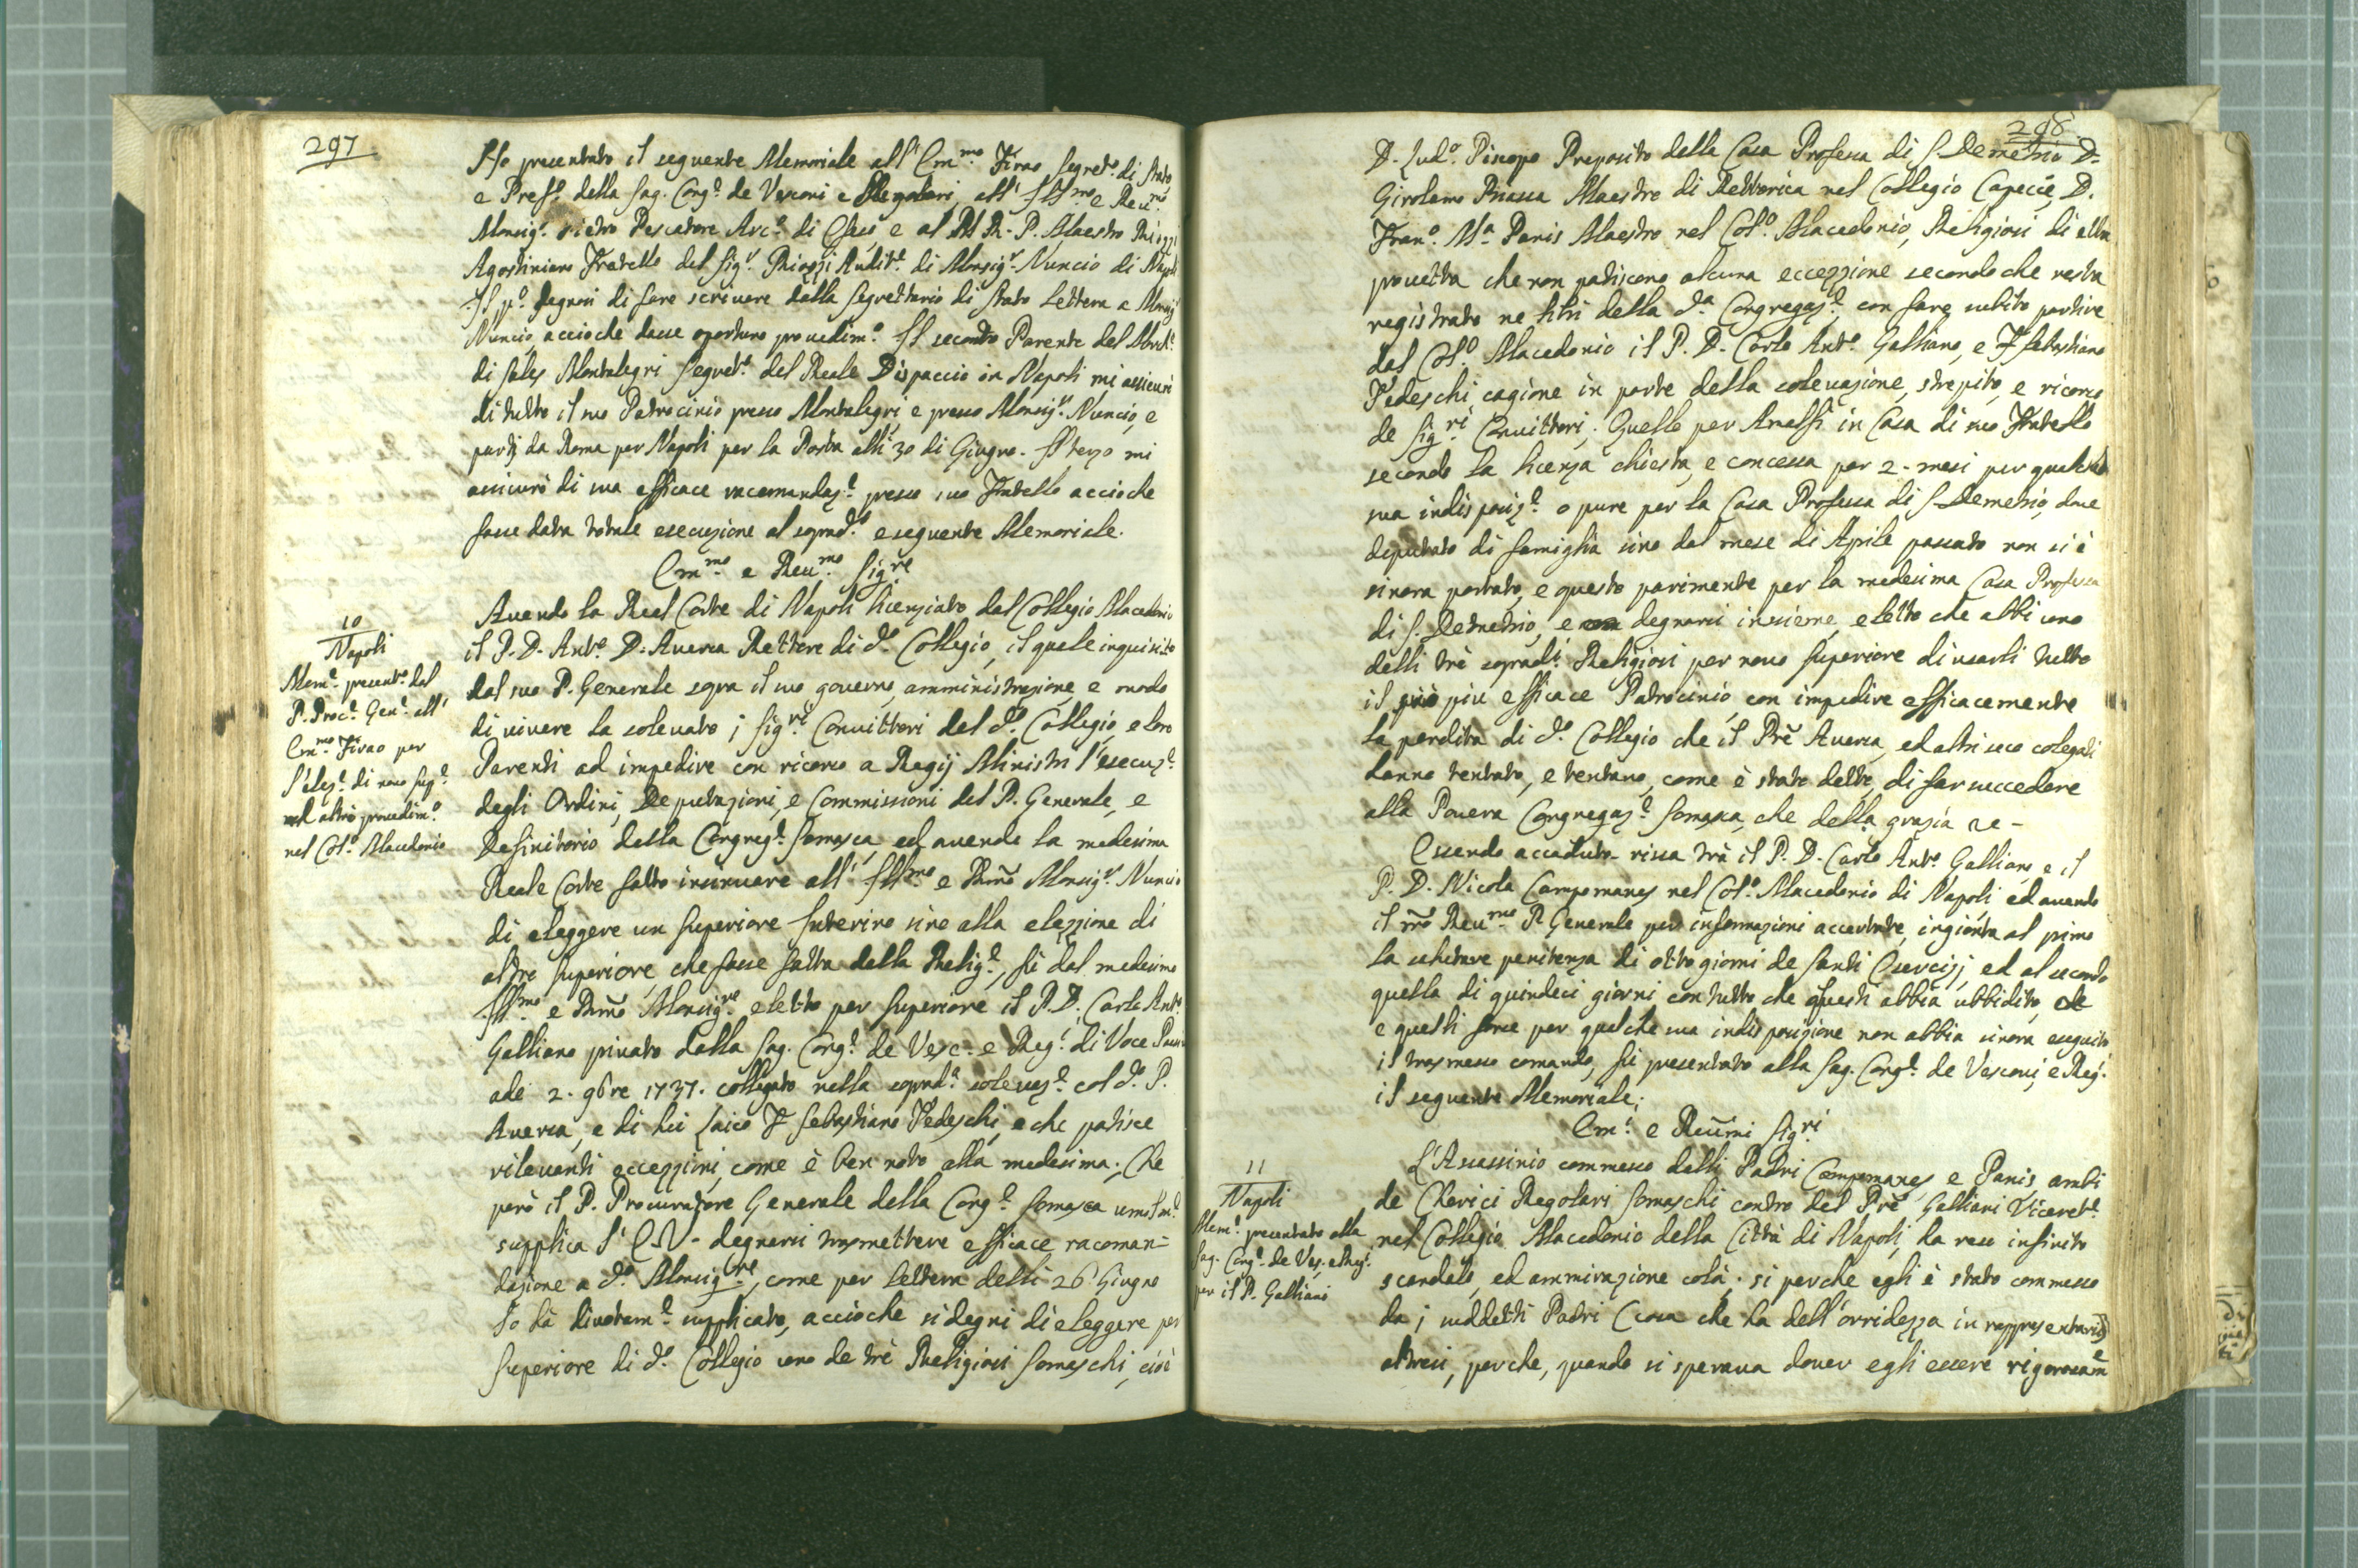 297
Ho presentato il seguente Memoriale all' Em.mo Firao Segret.o di Stato
e Pref.o della Sag. Cong.e de Vescovi e Regolari, all' Ill.mo e Reu.mo
Monsig.r Pietro Pescatore Arc.o di e al M. R. P. Maestro Riozzi
Agostiniano Fratello del Sig.r Riozzi Audit.e di Monsig.r Nuncio di Napoli
Il p.o degnosi di fare scrivere dalla Segrettario di Stato Lettera a Monsig.r
Nuncio, accioche dasse oportuno provedim.o Il secondo Parente del March.e
di Sales Montalegri Segret.o del Reale Dispaccio in Napoli mi assicurò
di tutto il suo Patrocinio presso Montalegri, e presso Monsig.r Nuncio, e
partj da Roma per Napoli per la Posta alli 30 di Giugno. Il terzo mi
assicurò di sua efficace racomandaz.e presso suo Fratello accioche
fosse data totale esecuzione al soprad.o e seguente Memoriale.
Em.mo e Reu.mo Sig.re
10
Napoli
Mem.e present.o dal
P. Proc.e Gen.e all'
Em.mo Firao per
l'elez.e di novo Sup.e
ed altro provedim.o
nel Col.o Macedonio
Auendo la Real Corte di Napoli licenziato dal Collegio Macedonio
il P. D. Ant.o D. Auersa Rettore di d.o Collegio, il quale inquisito
dal suo P. Generale sopra il suo governo, amministrazione, e modo
di vivere ha solevato i Sig.ri Convittori del d.o Collegio, e loro
Parenti ad impedire con ricorso a Regij Ministri l'esecuz.e
degli Ordini, Deputazioni, e Commissioni del P. Generale, e
Definitorio della Congreg.e Somasca, ed avendo la medesima
Reale Corte fatto insinuare all' Ill.mo e Rmo Monsig.r Nuncio
di eleggere un Superiore Interino sino alla elezzione di
altro Superiore, che fosse fatta dalla Relig.e, fù dal medesimo
Ill.mo e Rmo Monsig.re eletto per Superiore il P. D. Carlo Ant.o
Galliano privato dalla Sag. Cong.e de Vesc. e Reg.i di Voce Passiva
adi 2. 9bre 1737. collegato nella soprad.a solevaz.e col d.o P.
Auersa, e di lui Laico F Sebastiano Tedeschi, e che patisce
rilevanti eccezzioni, come è ben noto alla medesima. Che
però il P. Procuratore Generale della Cong.e Somasca umilm.e
supplica l' E.V. degnarsi trasmettere efficace racoman-
dazione a d.o Monsig.re, come per lettera delli 26 Giugno
lo hà divotam.e supplicato, accioche si degni di eleggere per
Superiore di d.o Collegio uno de trè Religiosi Somaschi, cioè
298
D. Lud.o Pisopo Preposito della Casa Professa di S. Demetrio D.
Girolamo Maestro di Rettorica nel Collegio Capecie, D.
Fran.o M.a Panis Maestro nel Col.o Macedonio, Religiosi di età
provetta che non patiscono alcuna eccezzione secondo che resta
registrato ne libri della d.a Congregaz.e, con fare subito partire
dal Col.o Macedonio il P. D. Carlo Ant.o Galliano, e F Sebastiano
Tedeschi cagione in parte della solevazione, strepito, e ricorso
de Sig.ri Convittori. Quello per Amalfi in Casa di suo Fratello
secondo la licenza chiesta, e concessa per 2. mesi per qualche
sua indisposiz.e o pure per la Casa Professa di S. Demetrio, dove
deputato di famiglia sino dal mese di Aprile passato non si è
sinora portato, e questo parimente per la medesima Casa Professa
di S. Demetrio, e degnarsi insieme, eletto che abbi uno
delli trè soprad.i Religiosi per novo Superiore di usarli tutto
il più efficace Patrocinio, con impedire efficacemente
la perdita di d.o Collegio che il Prē Auersa, ed altri seco colegati
hanno tentato, e tentano, come è stato detto, di far succedere
alla Povera Congregaz.e Somasca, che della grazia &c-
Essendo accaduto rissa trà il P. D. Carlo Ant.o Galliano, e il
P. D. Nicola Campomanes nel Col.o Macedonio di Napoli ed avendo
il mro Reu.mo P. Generale per informazioni accertate, ingionta al primo
la salutare penitenza di otto giorni de Santi Esercizj, ed al secondo
quella di quindeci giorni con tutto che questi abbia ubbidito,
e quelli forse per qualche sua indisposizione non abbia sinora eseguito
il trasmesso comando, fù presentato alla Sag. Cong.e de Vescovi, e Reg.i
il seguente Memoriale;
Em.i e Reūmi Sig.ri
11
Napoli
Mem.e presentato alla
Sag. Cong.e de Ves. e Reg.i
per il P. Galliani
L'Assassinio commesso dalli Padri Campomanes e Panis ambi
de Cherici Regolari Somaschi contro del Prē Galliani Viceret.e
nel Collegio Macedonio della Città di Napoli, ha reso infinito
scandalo, ed ammirazione colà; si perche egli è stato commesso
da i suddetti Padri (cosa che ha dell'orridezza in rappresentarisi)
altresi, perche, quando si sperava dover egli essere rigorosam.e